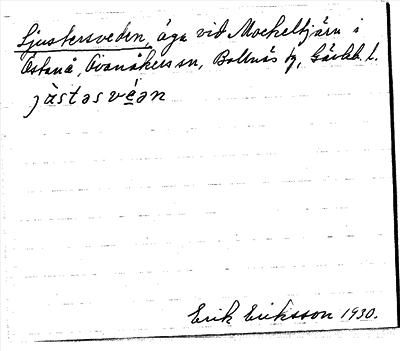 Ljustersveden, äga vid Mockeltjärn i
Östanå, Ovanåkers sn, Bollnäs tg, Gävleb. l.
jàstəsvéən
Erik Eriksson 1930.